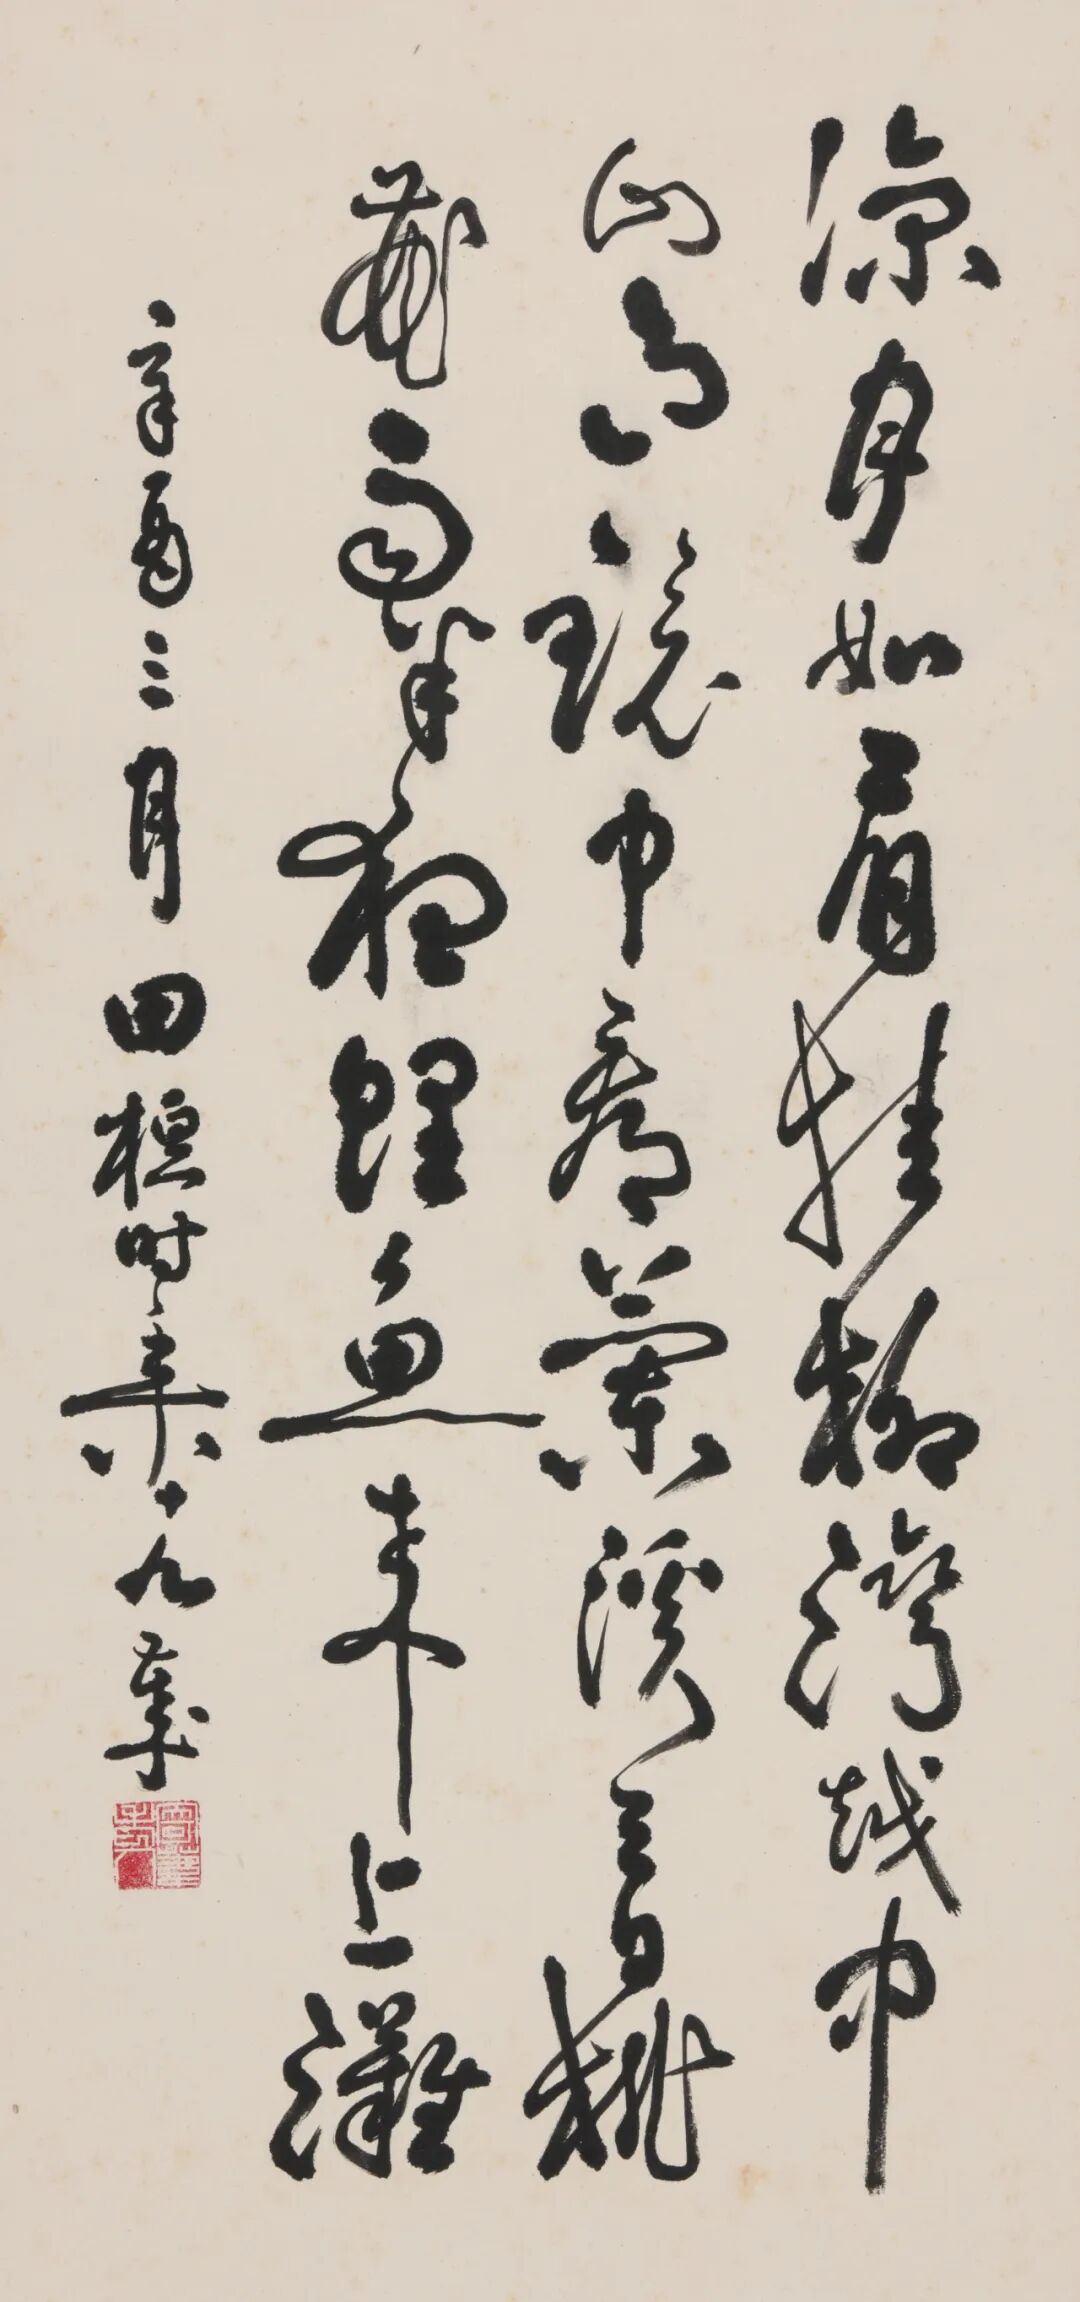 涼月如眉挂柳灣越中
山色鏡中看蘭溪三日桃
花雨半夜鯉魚來上灘
辛酉三月田桓时年八十九歲